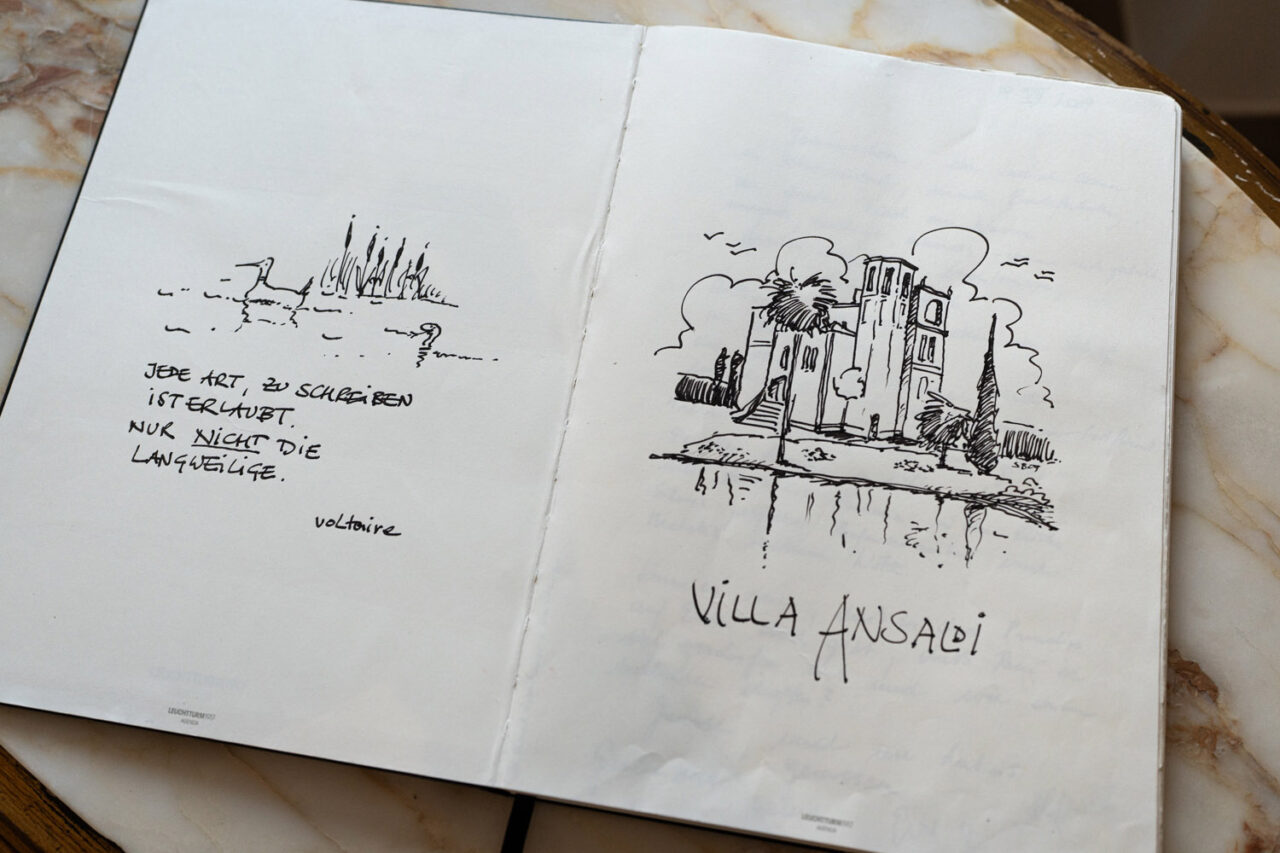 JEDE ART, ZU SCHREIBEN
IST ERLAUBT.
NUR NICHT DIE
LANGWEILIGE.
Voltaire
LEUCHTTURM1917
AGENDA
VILLA ANSALDI
LEUCHTTURM1917
AGENDA